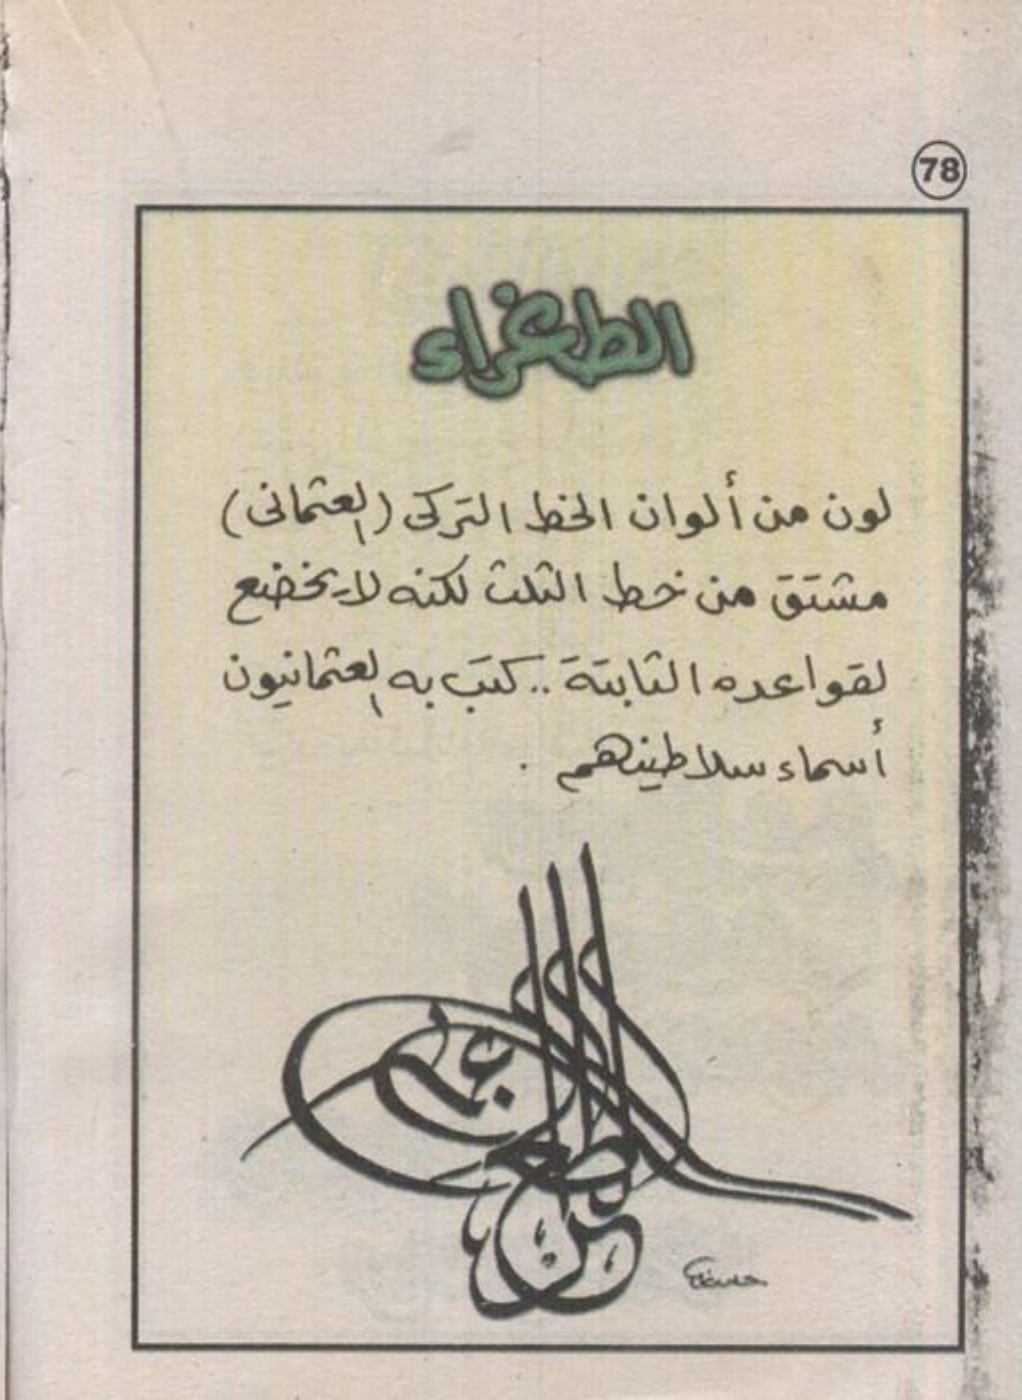 78
الطغراء
لون من ألوان الخط التركى (العثمانى)
مشتق من خط الثلث لكنه لا يخضع
لقواعده الثابتة .. كتب به العثمانيون
أسماء سلاطينهم .